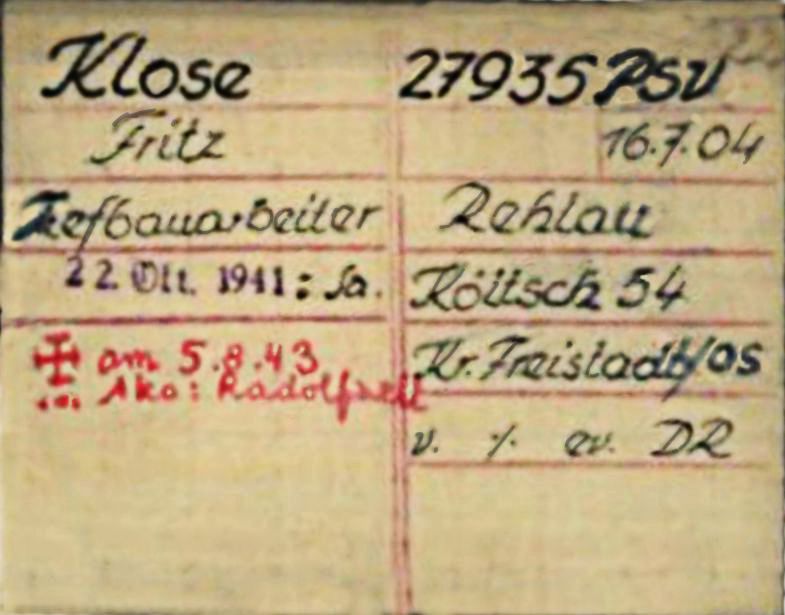 Klose 27935 PSV
Fritz 16.7.04
Tiefbauarbeiter Rehlau
22. Okt. 1941 : Sa. Költsch 54
✠ am 5.8.43 Kr. Freistadt/OS
Ako: Radolfzell
v. ⁒ ev. DR